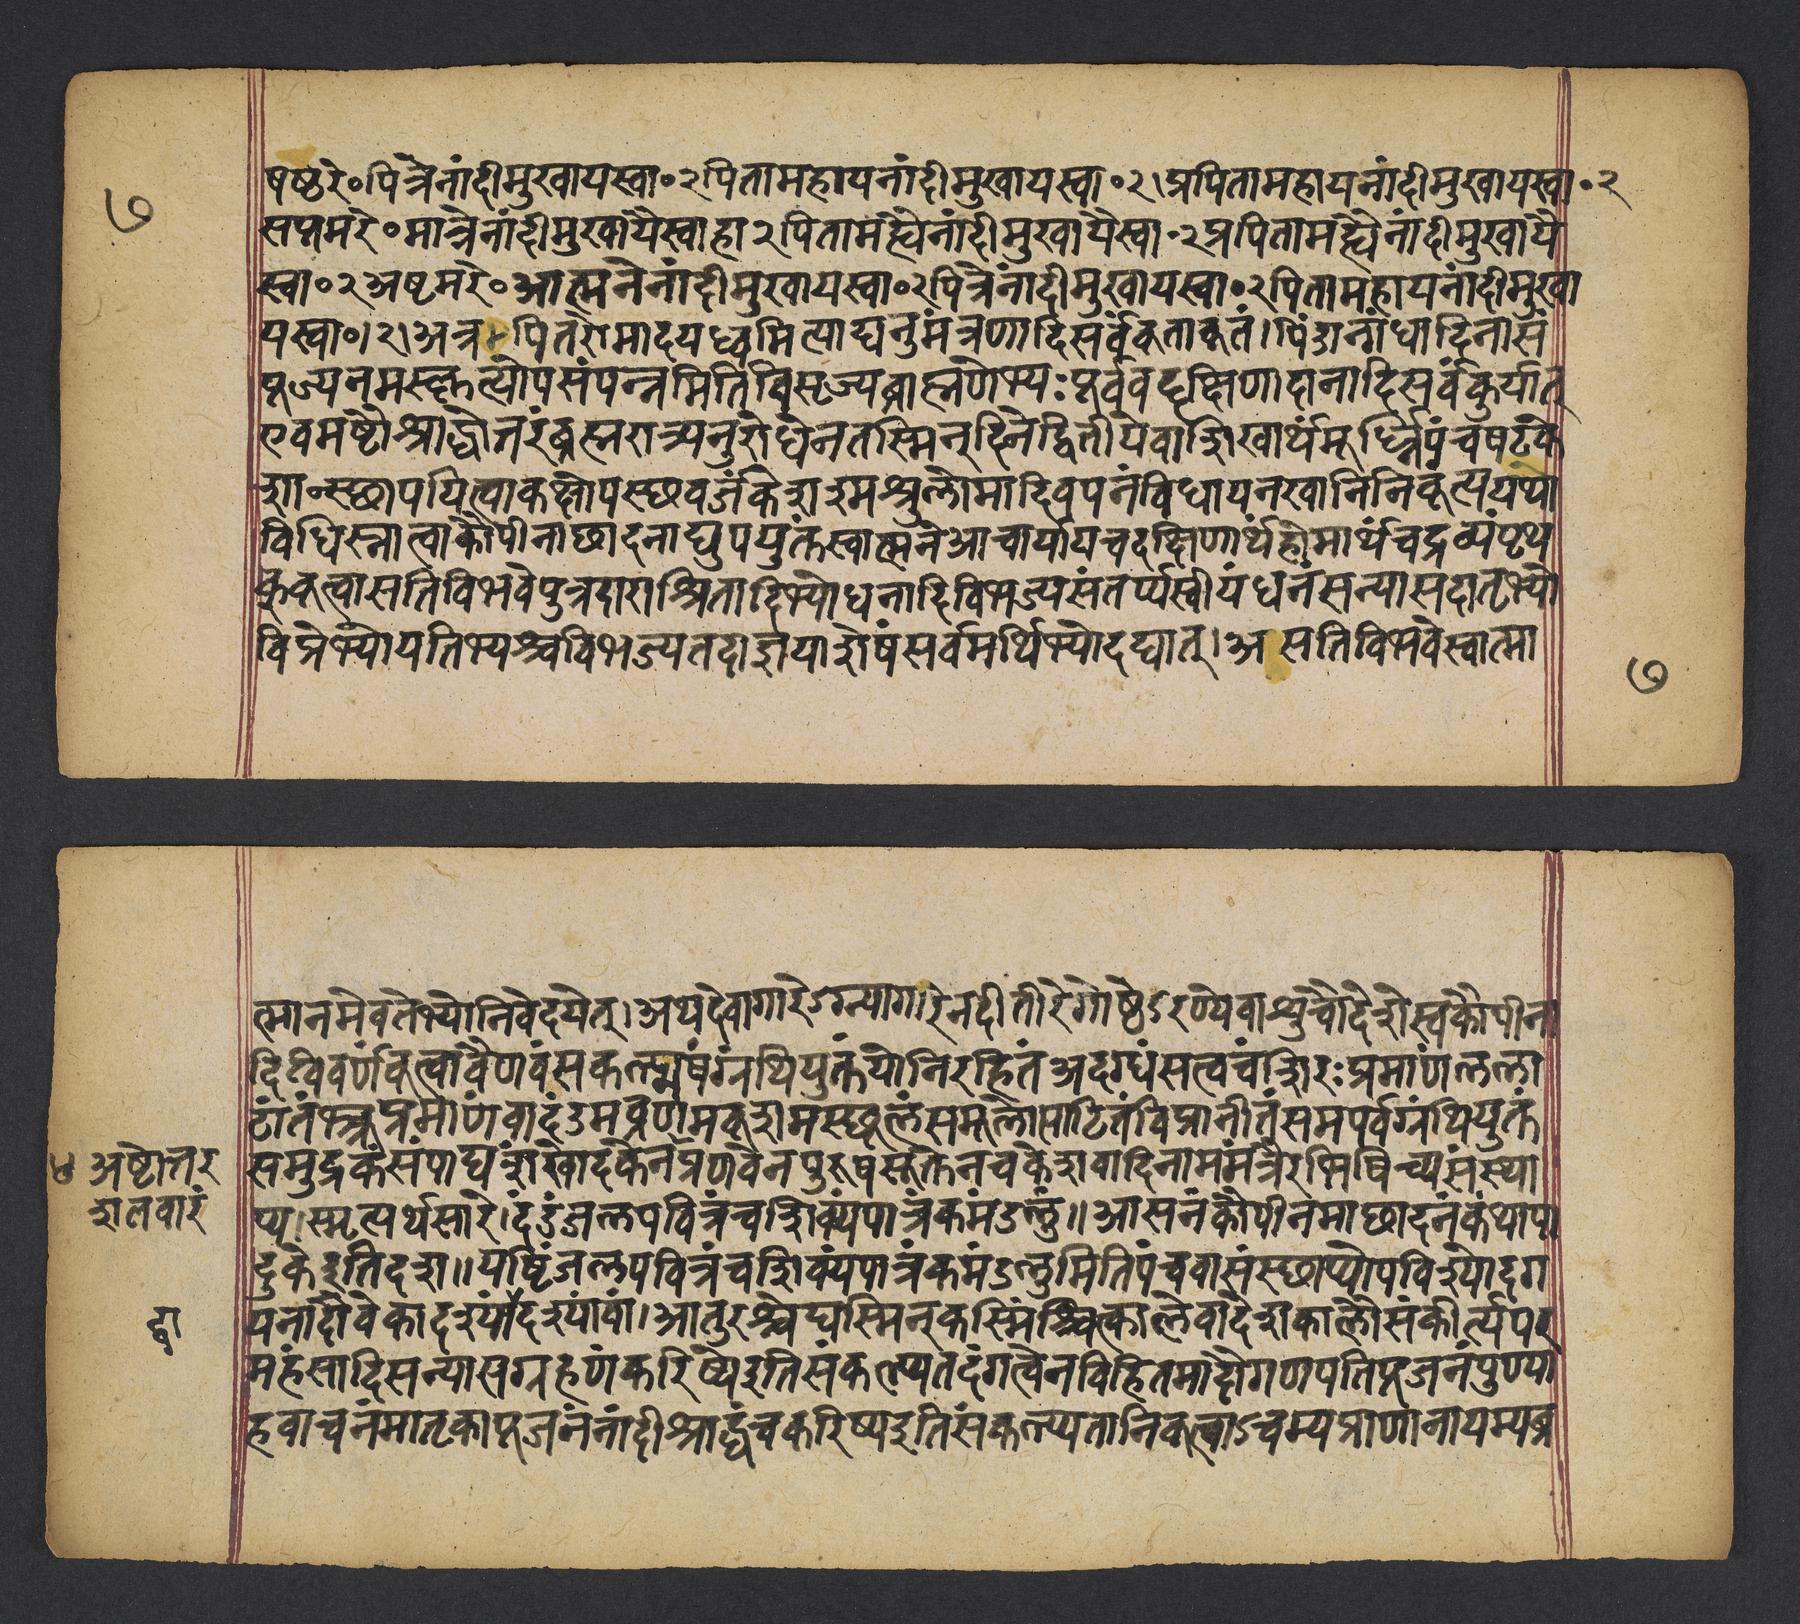 षष्ठरे॰पित्रेनांदीमुखायस्वा॰२पितामहायनांदीमुखायस्वा॰२।प्रपितामहायनांदीमुखायस्वा॰२
७
सप्तमरे॰मात्रेनांदीमुखायैस्वाहा२पितामह्यैनांदीमुखायैस्वा॰२प्रपितामह्यैनांदीमुखायै
स्वा॰२अष्टमरे॰आत्मनेनांदीमुखायस्वा॰२पित्रेनांदीमुखायस्वा॰२पितामहायनांदीमुखा
यस्वा॰।२।अत्र पितरोमादयध्वमित्याद्यनुमंत्रणादिसर्वंकृताकृतं।पिंडानांधादिनासं
पूज्यनमस्कृत्योपसंपन्नमितिविसृज्यब्राह्मणेभ्यःपूर्ववद्दक्षिणादानादिसर्वंकुर्यात्
एवमष्टौश्राद्धोत्तरंब्रह्मरात्र्यनुरोधेनतस्मिन्दिनेद्वितीयेवाशिखार्थंमूर्ध्निपंचषट्के
शान्स्छापयित्वाकक्षोपस्छवर्जंकेशश्मश्रुलोमादिवपनंविधायनखानिनिकृत्ययथो
विधिस्नात्वाकौपीनाछादनाद्युपयुक्तंस्वात्मनेआचार्यायचदक्षिणार्थंहोमार्थंचद्रव्यंपृथ
क्कृत्वासतिविभवेपुत्रदाराश्रितादिभ्योधनादिविभज्यसंतर्प्यस्वीयंधनंसन्यासदातृभ्यो
विप्रेभ्योयतिभ्यश्चविभज्यतदाज्ञयाशेषंसर्वमर्थिभ्योदद्यात्।अ सतिविभवेस्वात्मा
७
त्मानमेवतेभ्योनिवेदयेत्।अथदेवागारेऽग्न्यागारेनदीतीरेगोष्ठेऽरण्येवाशुचौदेशेस्वकौपीना
दिविवर्णंकृत्वावैणवंसकल्मषंग्रंथियुक्तंयोनिरहितंअदग्धंसत्वचंशिरःप्रमाणंलला
टांतंभ्रूप्रमाणंवादंडमव्रणमकृशमस्छूलंसमूलोत्पाटितंविप्रानीतंसमपर्वग्रंथियुक्तं
समुद्रकंसंपाद्यशंखोदकेनप्रणवेनपुरुषसूक्तेनचकेशवादिनाममंत्रैरभिषिच्यसंस्था
४ अष्टोत्तर
शतवारं
प्य।स्मृत्यर्थसारे।दंडंजलपवित्रंचशिक्यंपात्रंकमंडलुं॥आसनंकौपीनमाछादनंकंथापा
दुकेइतिदश॥यष्टिंजलपवित्रंचशिक्यंपात्रंकमंडलुमितिपंचवासंस्छाप्योपविश्योदग
यनादौवैकादश्यांद्वादश्यांवा।आतुरश्चेद्यस्मिन्कस्मिंश्चित्कालेवादेशकालौसंकीर्त्यपर
द्वा
महंसादिसन्यासग्रहणंकरिष्येइतिसंकल्प्यतदंगत्वेनविहितमादौगणपतिपूजनंपुण्या
हवाचनंमातृकापूजनंनांदीश्राद्धंचकरिष्यइतिसंकल्प्यतानिकृत्वाऽचम्यप्राणानायम्यब्र